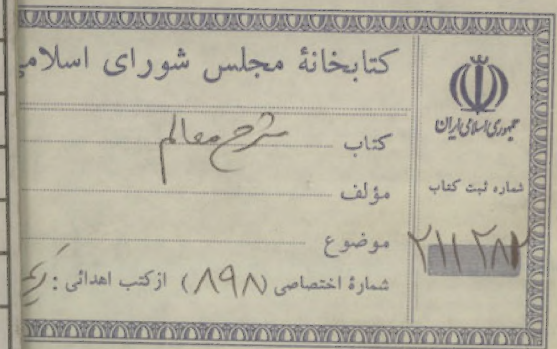 کتابخانهٔ مجلس شورای اسلامی
جمهوری اسلامی ایران
کتاب شرح معالم
مؤلف
شماره ثبت کتاب
موضوع
۲۱۱۲۸۲
شمارهٔ اختصاصی (۸۹۸) از کتب اهدائی :